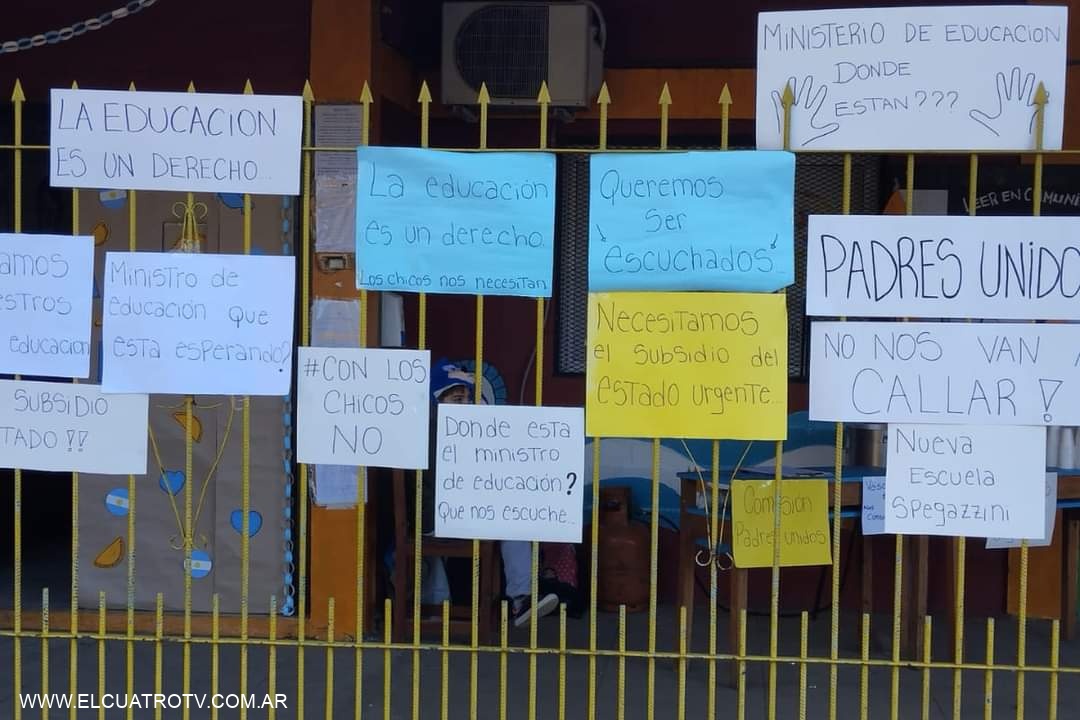 MINISTERIO DE EDUCACION
DONDE
ESTAN???
LA EDUCACION
ES UN DERECHO...
La educación
es un derecho
Los chicos nos necesitan
Queremos
Ser
¡escuchados!...
LEER EN
PADRES UNIDO
AMOS
ESTROS
educacion
Ministro de
educación que
esta esperando?
Necesitamos
el subsidio del
estado urgente...
NO NOS VAN A
CALLAR!
#CON LOS
CHICOS
NO
SUBSIDIO
TADO!!
Donde esta
el ministro
de educación?
Que nos escuche...
Nueva
Escuela
Spegazzini
Comisión
Padres unidos
WWW.ELCUATROTV.COM.AR